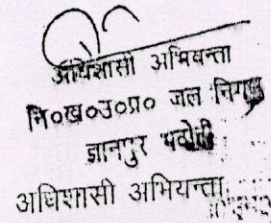 अधिशासी अभियन्ता
नि०ख०उ०प्र० जल निगम
ज्ञानपुर भदोही
अधिशासी अभियन्ता